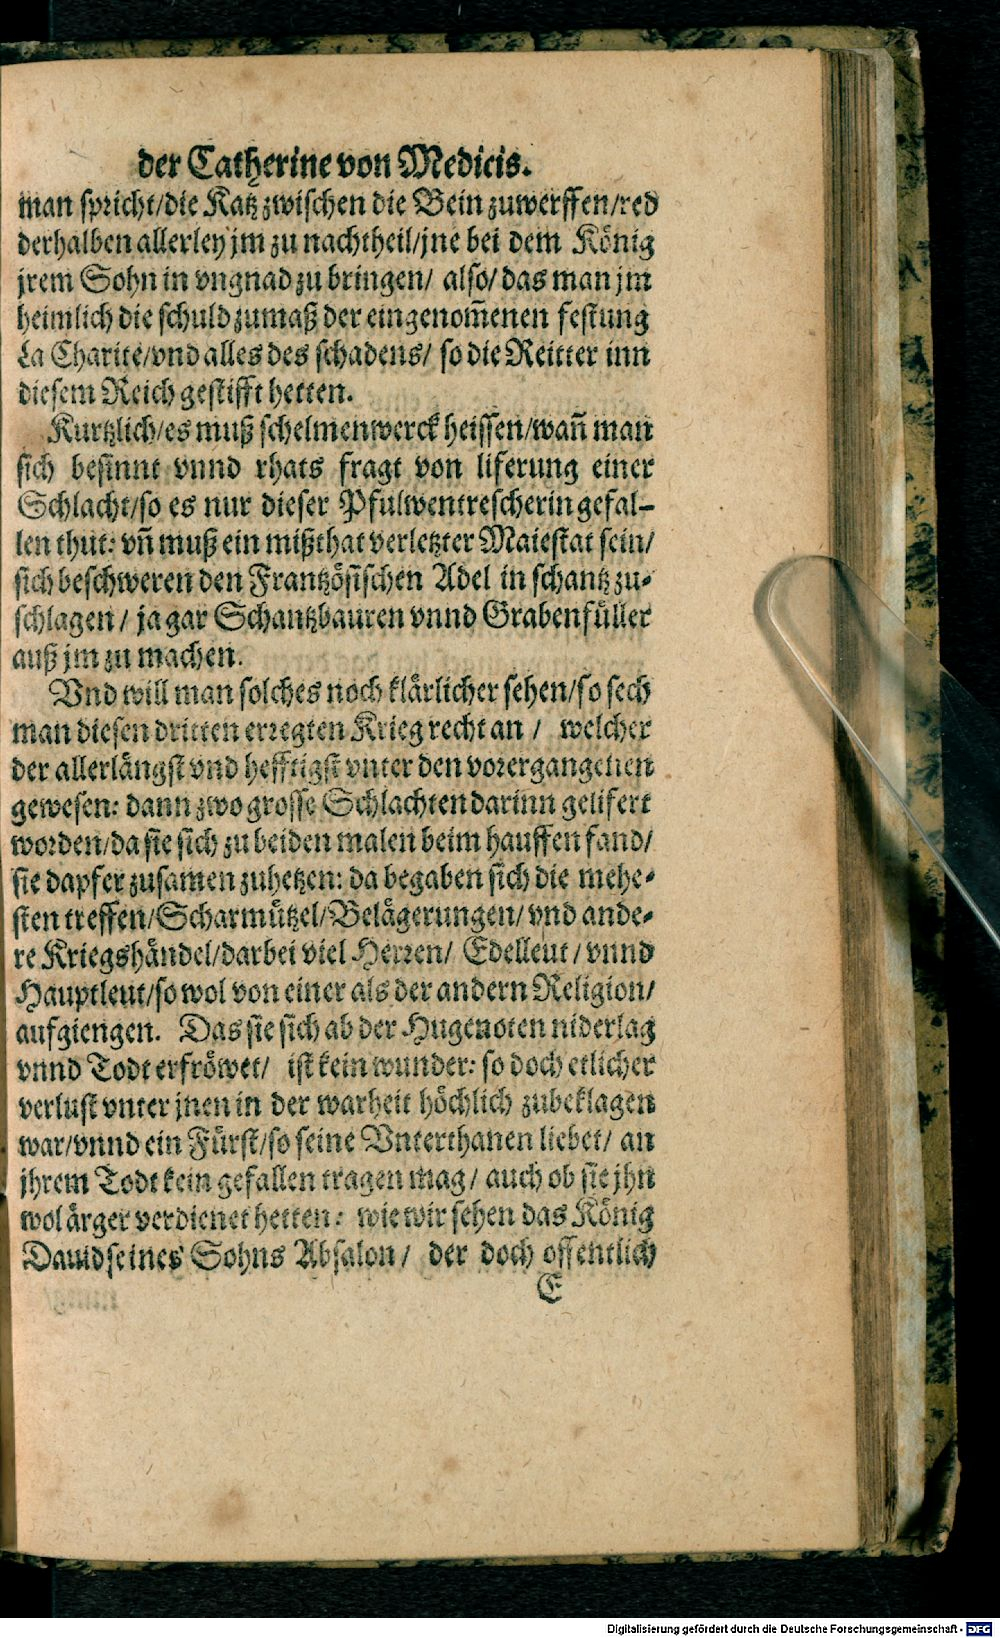 der Catherine von Medicis.
man spricht/die Katz zwischen die Bein zuwerffen/red
derhalben allerley jm zu nachtheil/jne bei dem König
jrem Sohn in vngnad zu bringen/ also/ das man jm
heimlich die schuld zumaß der eingenom̃enen festung
La Charite/vnd alles des schadens/ so die Reitter inn
diesem Reich gestifft hetten.
Kurtzlich/es muß schelmenwerck heissen/wañ man
sich besinnt vnnd rhats fragt von liferung einer
Schlacht/so es nur dieser Pfulwentrescherin gefal-
len thut: vñ muß ein mißthat verletzter Maiestat sein/
sich beschweren den Frantzösischen Adel in schantz zu-
schlagen/ ja gar Schantzbauren vnnd Grabenfüller
auß jm zu machen.
Vnd will man solches noch klärlicher sehen/so sech
man diesen dritten erregten Krieg recht an/ welcher
der allerlängst vnd hefftigst vnter den vorergangenen
gewesen: dann zwo grosse Schlachten darinn gelifert
worden/da sie sich zu beiden malen beim hauffen fand/
sie dapfer zusamen zuhetzen: da begaben sich die mehe-
sten treffen/Scharmützel/Belägerungen/vnd ande-
re Kriegshändel/darbei viel Herren/ Edelleut/vnnd
Hauptleut/so wol von einer als der andern Religion/
aufgiengen. Das sie sich ab der Hugenoten niderlag
vnnd Todt erfröwet/ ist kein wunder: so doch etlicher
verlust vnter jnen in der warheit höchlich zubeklagen
war/vnnd ein Fürst/so seine Vnterthanen liebet/ an
jhrem Todt kein gefallen tragen mag/ auch ob sie jhn
wol ärger verdienet hetten: wie wir sehen das König
Dauid seines Sohns Absalon/ der doch offentlich
E
Digitalisierung gefördert durch die Deutsche Forschungsgemeinschaft - DFG